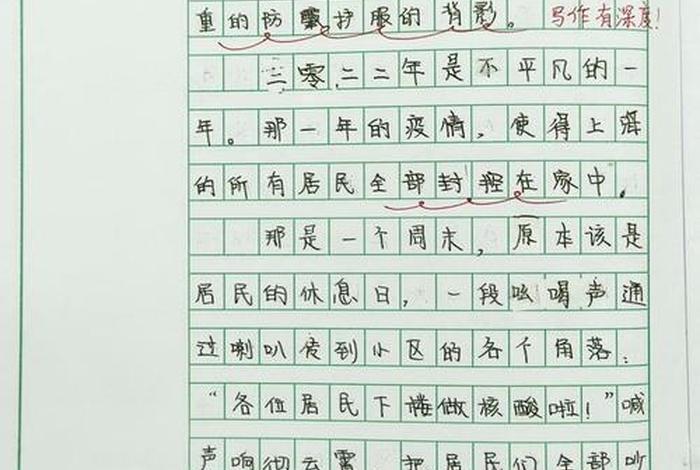 重的防护服的背影。 写作有深度！
二零二二年是不平凡的一
年。那一年的疫情，使得上海
的所有居民全部封控在家中.
那是一个周末，原本该是
居民的休息日，一段吆喝声通
过喇叭传到小区的各个角落：
“各位居民下楼做核酸啦！”喊
声响彻云霄，把居民们全部吵